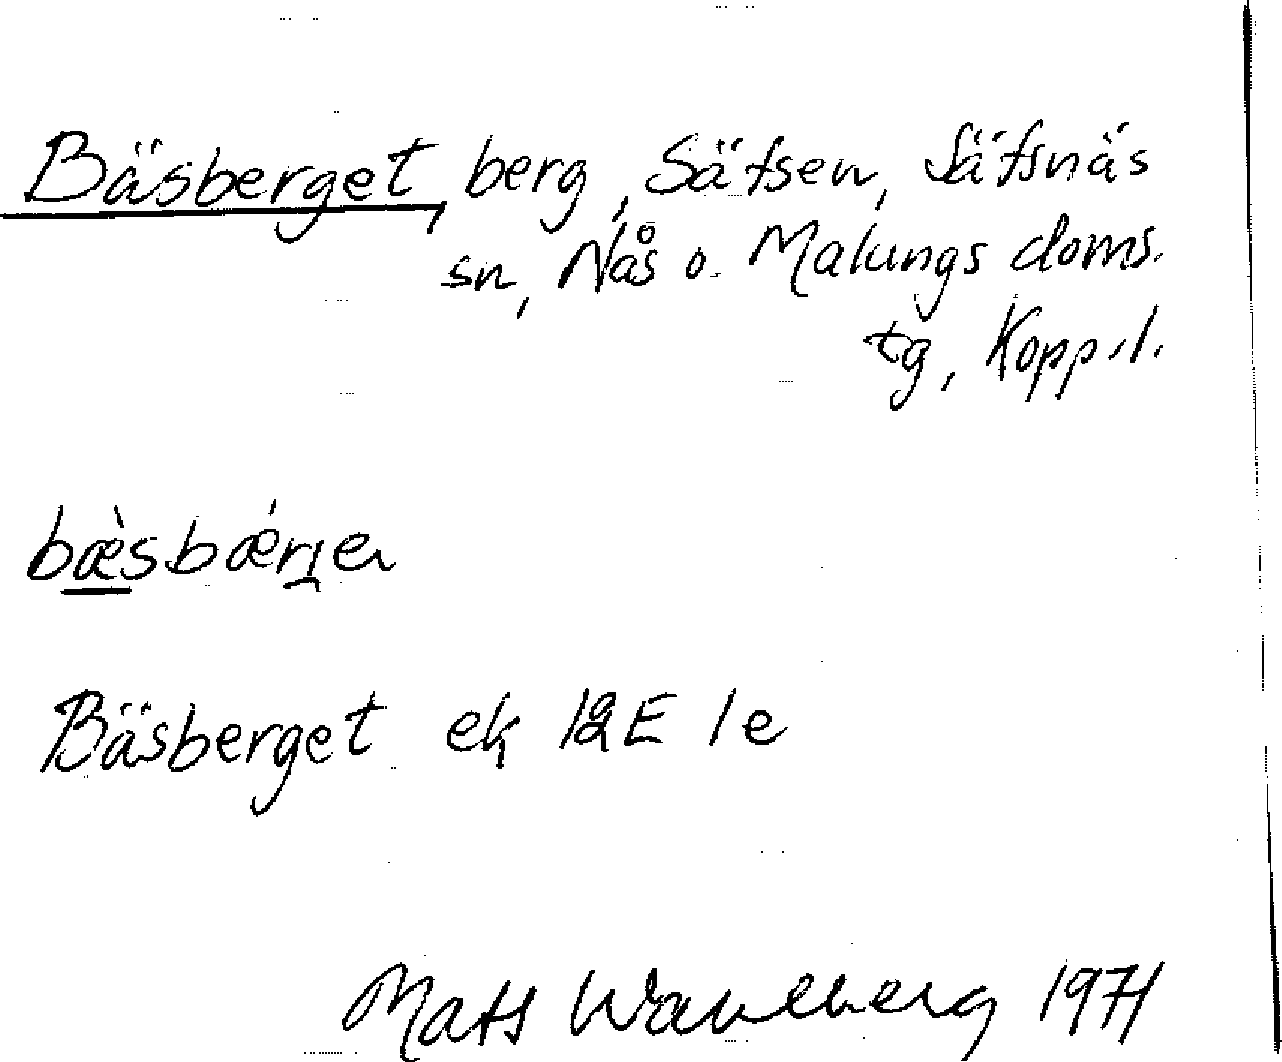 Bäsberget, berg, Säfsen, Säfsnäs
sn, Nås o. Malungs doms.
tg, Kopp.l.
bæ̀sbǽrjen
Bäsberget ek 12E 1e
Mats Wahlberg 1971